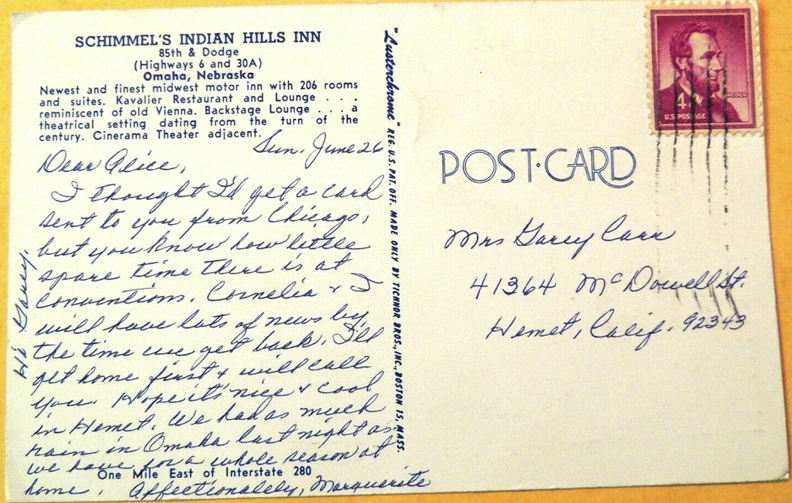 SCHIMMEL'S INDIAN HILLS INN
85th & Dodge
(Highways 6 and 30A)
Omaha, Nebraska
Newest and finest midwest motor inn with 206 rooms
and suites. Kavalier Restaurant and Lounge . . .
reminiscent of old Vienna. Backstage Lounge . . . a
theatrical setting dating from the turn of the
century. Cinerama Theater adjacent.
Sun. June 26
Dear Alice,
I thought I'd get a card
sent to you from Chicago,
but you know how little
spare time there is at
conventions. Cornelia & I
will have lots of news by
the time we get back. I'll
get home first & will call
you. Hope it's nice & cool
in Hemet. We had as much
rain in Omaha last night as
we have for a whole season at
home. Affectionately, Marguerite
One Mile East of Interstate 280
Hi Garey.
"Lusterchrome" REG. U.S. PAT. OFF. MADE ONLY BY TICHNOR BROS., INC., BOSTON 15, MASS.
LINCOLN
4¢
U.S. POSTAGE
POST CARD
Mrs Garey Carr
41364 McDowell St.
Hemet, Calif. 92343